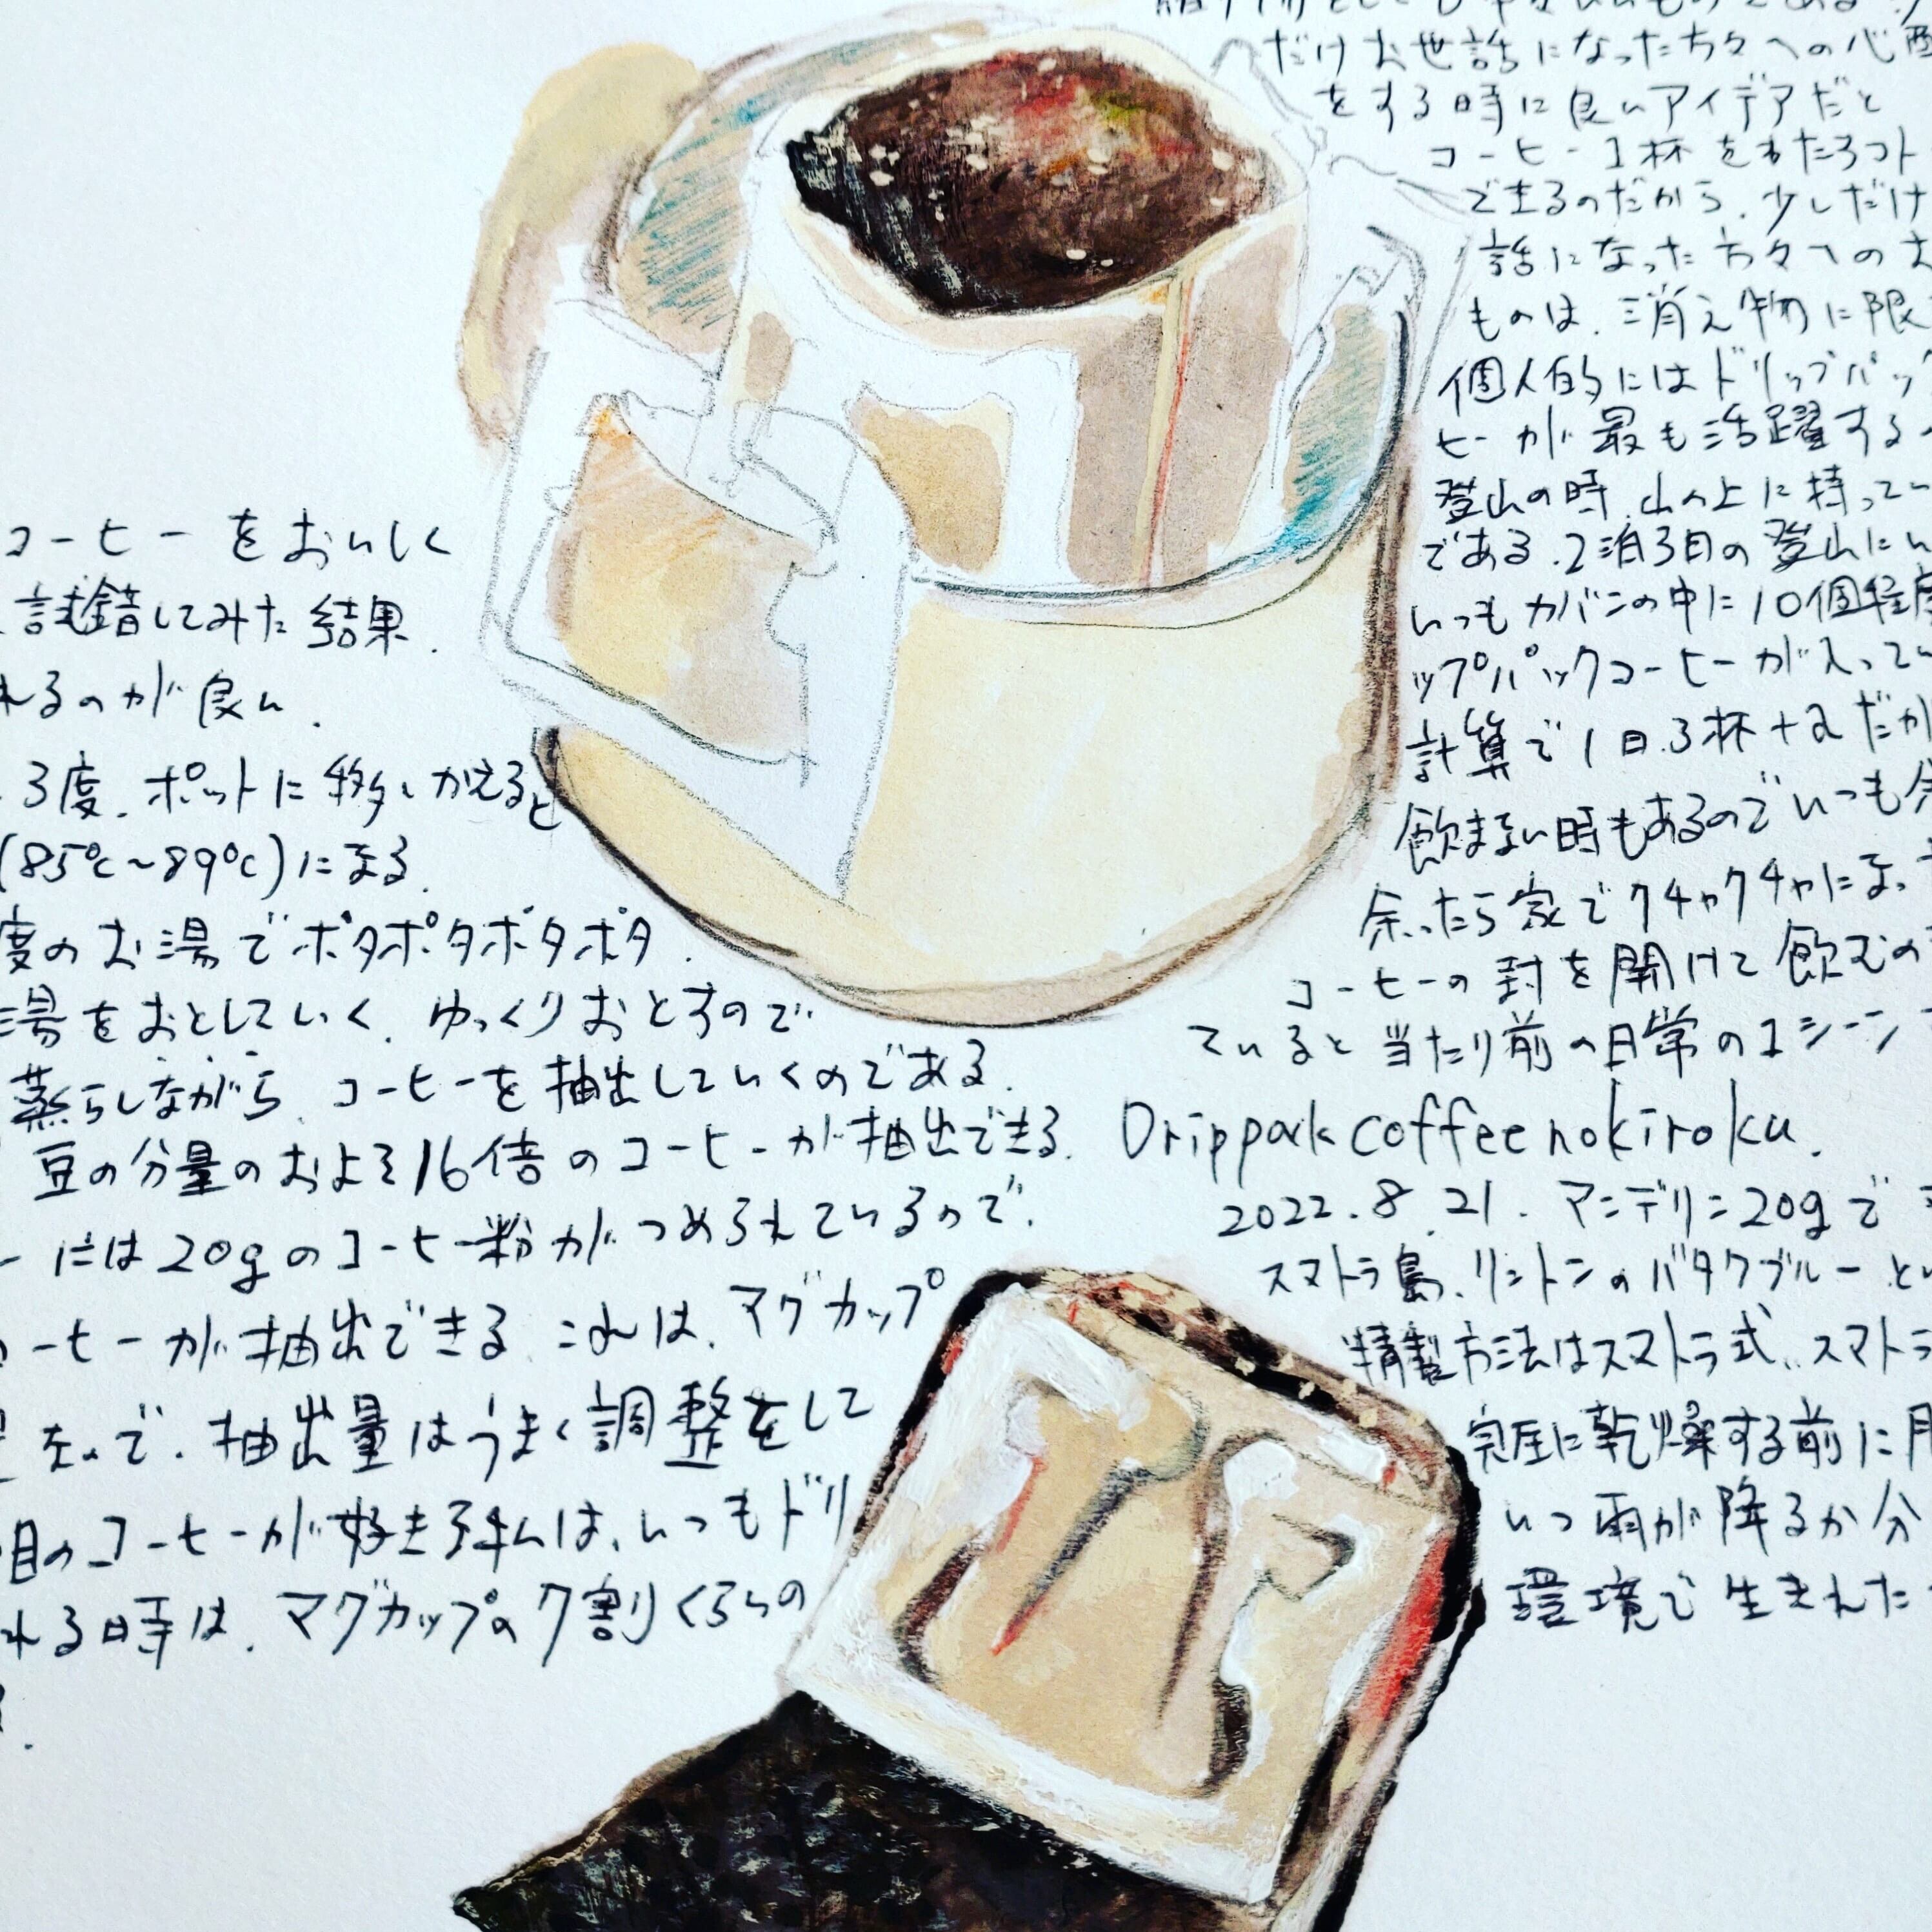 だけお世話になった方々への心配
をする時に良いアイデアだと
コーヒー1杯をわたるコト
できるのだから、少しだけ
話になった方々へのお
ものは、消え物に限
個人的にはドリップパッ
ヒーが最も活躍する
登山の時、山の上に持ってい
である。2泊3日の登山にい
いつもカバンの中に10個程度
ップパックコーヒーが入ってい
計算で1日3杯+αだか
飲まない時もあるのでいつも余
余ったら家でクチャクチャになっ
コーヒーの封を開けて飲むの
ていると当たり前の日常の1シーン
Drippack coffee no kiroku.
2022.8.21. マンデリン20gで
スマトラ島、リントンのバタクブルーとい
精製方法はスマトラ式、スマトラ
完全に乾燥する前に
いつ雨が降るか分
環境で生まれた
コーヒーをおいしく
試錯してみた結果、
れるのが良い。
3度、ポットに移しかえると
(85℃~89℃)になる。
度のお湯でポタポタポタポタ
湯をおとしていく。ゆっくりおとすので
蒸らしながら、コーヒーを抽出していくのである。
豆の分量のおよそ16倍のコーヒーが抽出できる。
ーには20gのコーヒー粉がつめられているので、
コーヒーが抽出できる。これは、マグカップ
なので、抽出量はうまく調整をして
目のコーヒーが好きな私は、いつもドリ
れる時は、マグカップの7割くらいの